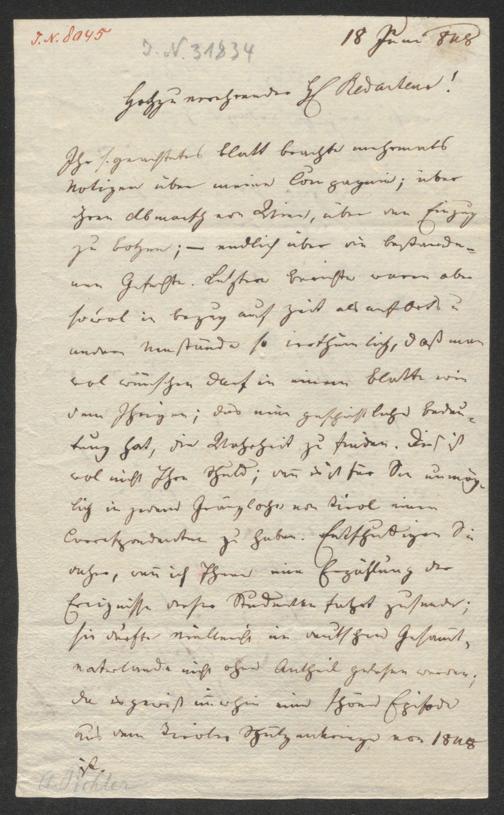 I.N. 8945
I.N. 31834
18 Juni 848
Hochzuverehrender H Redacteur!
Ihr geachtetes Blatt brachte mehrmals
Notizen über meine Compagnie; über
ihren Abmarsch von Wien, über den Einzug
zu Botzen; – endlich über die bestande-
nen Gefechte. Letztere Berichte waren aber
sowol in bezug auf Zeit als auf Ort u
andere Umstände so irrthümlich, daß man
wol wünschen darf in einem Blatte wie
dem Ihrigen; das eine geschichtliche Bedeu-
tung hat, die Wahrheit zu finden. Dieß ist
wol nicht Ihre Schuld; denn es ist für Sie unmög-
lich in jedem von Tirol einen
Correspondenten zu haben. Entschuldigen Sie
daher, wenn ich Ihnen eine Erzählung der
Ereignisse dieser Studentenfahrt zusende;
sie dürfte vielleicht im deutschen Gesammt-
vaterlande nicht ohne Antheil gelesen werden;
da es gewiß immerhin eine schöne Episode
aus dem Tiroler Schützenkriege von 1848
ist.
A. Pichler